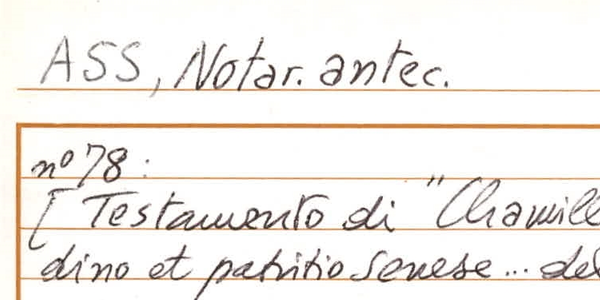 ASS, Notar. antec.
nº 78:
[ Testamento di "Chamill
dino et patritio Senese... del